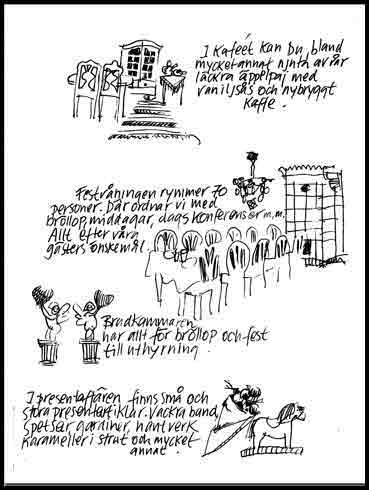 I Kaféet kan Du, bland
mycket annat njuta av vår
läckra äppelpaj med
vaniljsås och nybryggt
kaffe.
Festvåningen rymmer 70
personer. Där ordnar vi med
bröllop, middagar, dagskonferenser m.m.
Allt efter våra
gästers önskemål.
Brudkammaren
har allt för bröllop och fest
till uthyrning.
I presentaffären finns små och
stora presentartiklar. Vackra band,
spetsar, gardiner, hantverk
karameller i strut och mycket
annat.